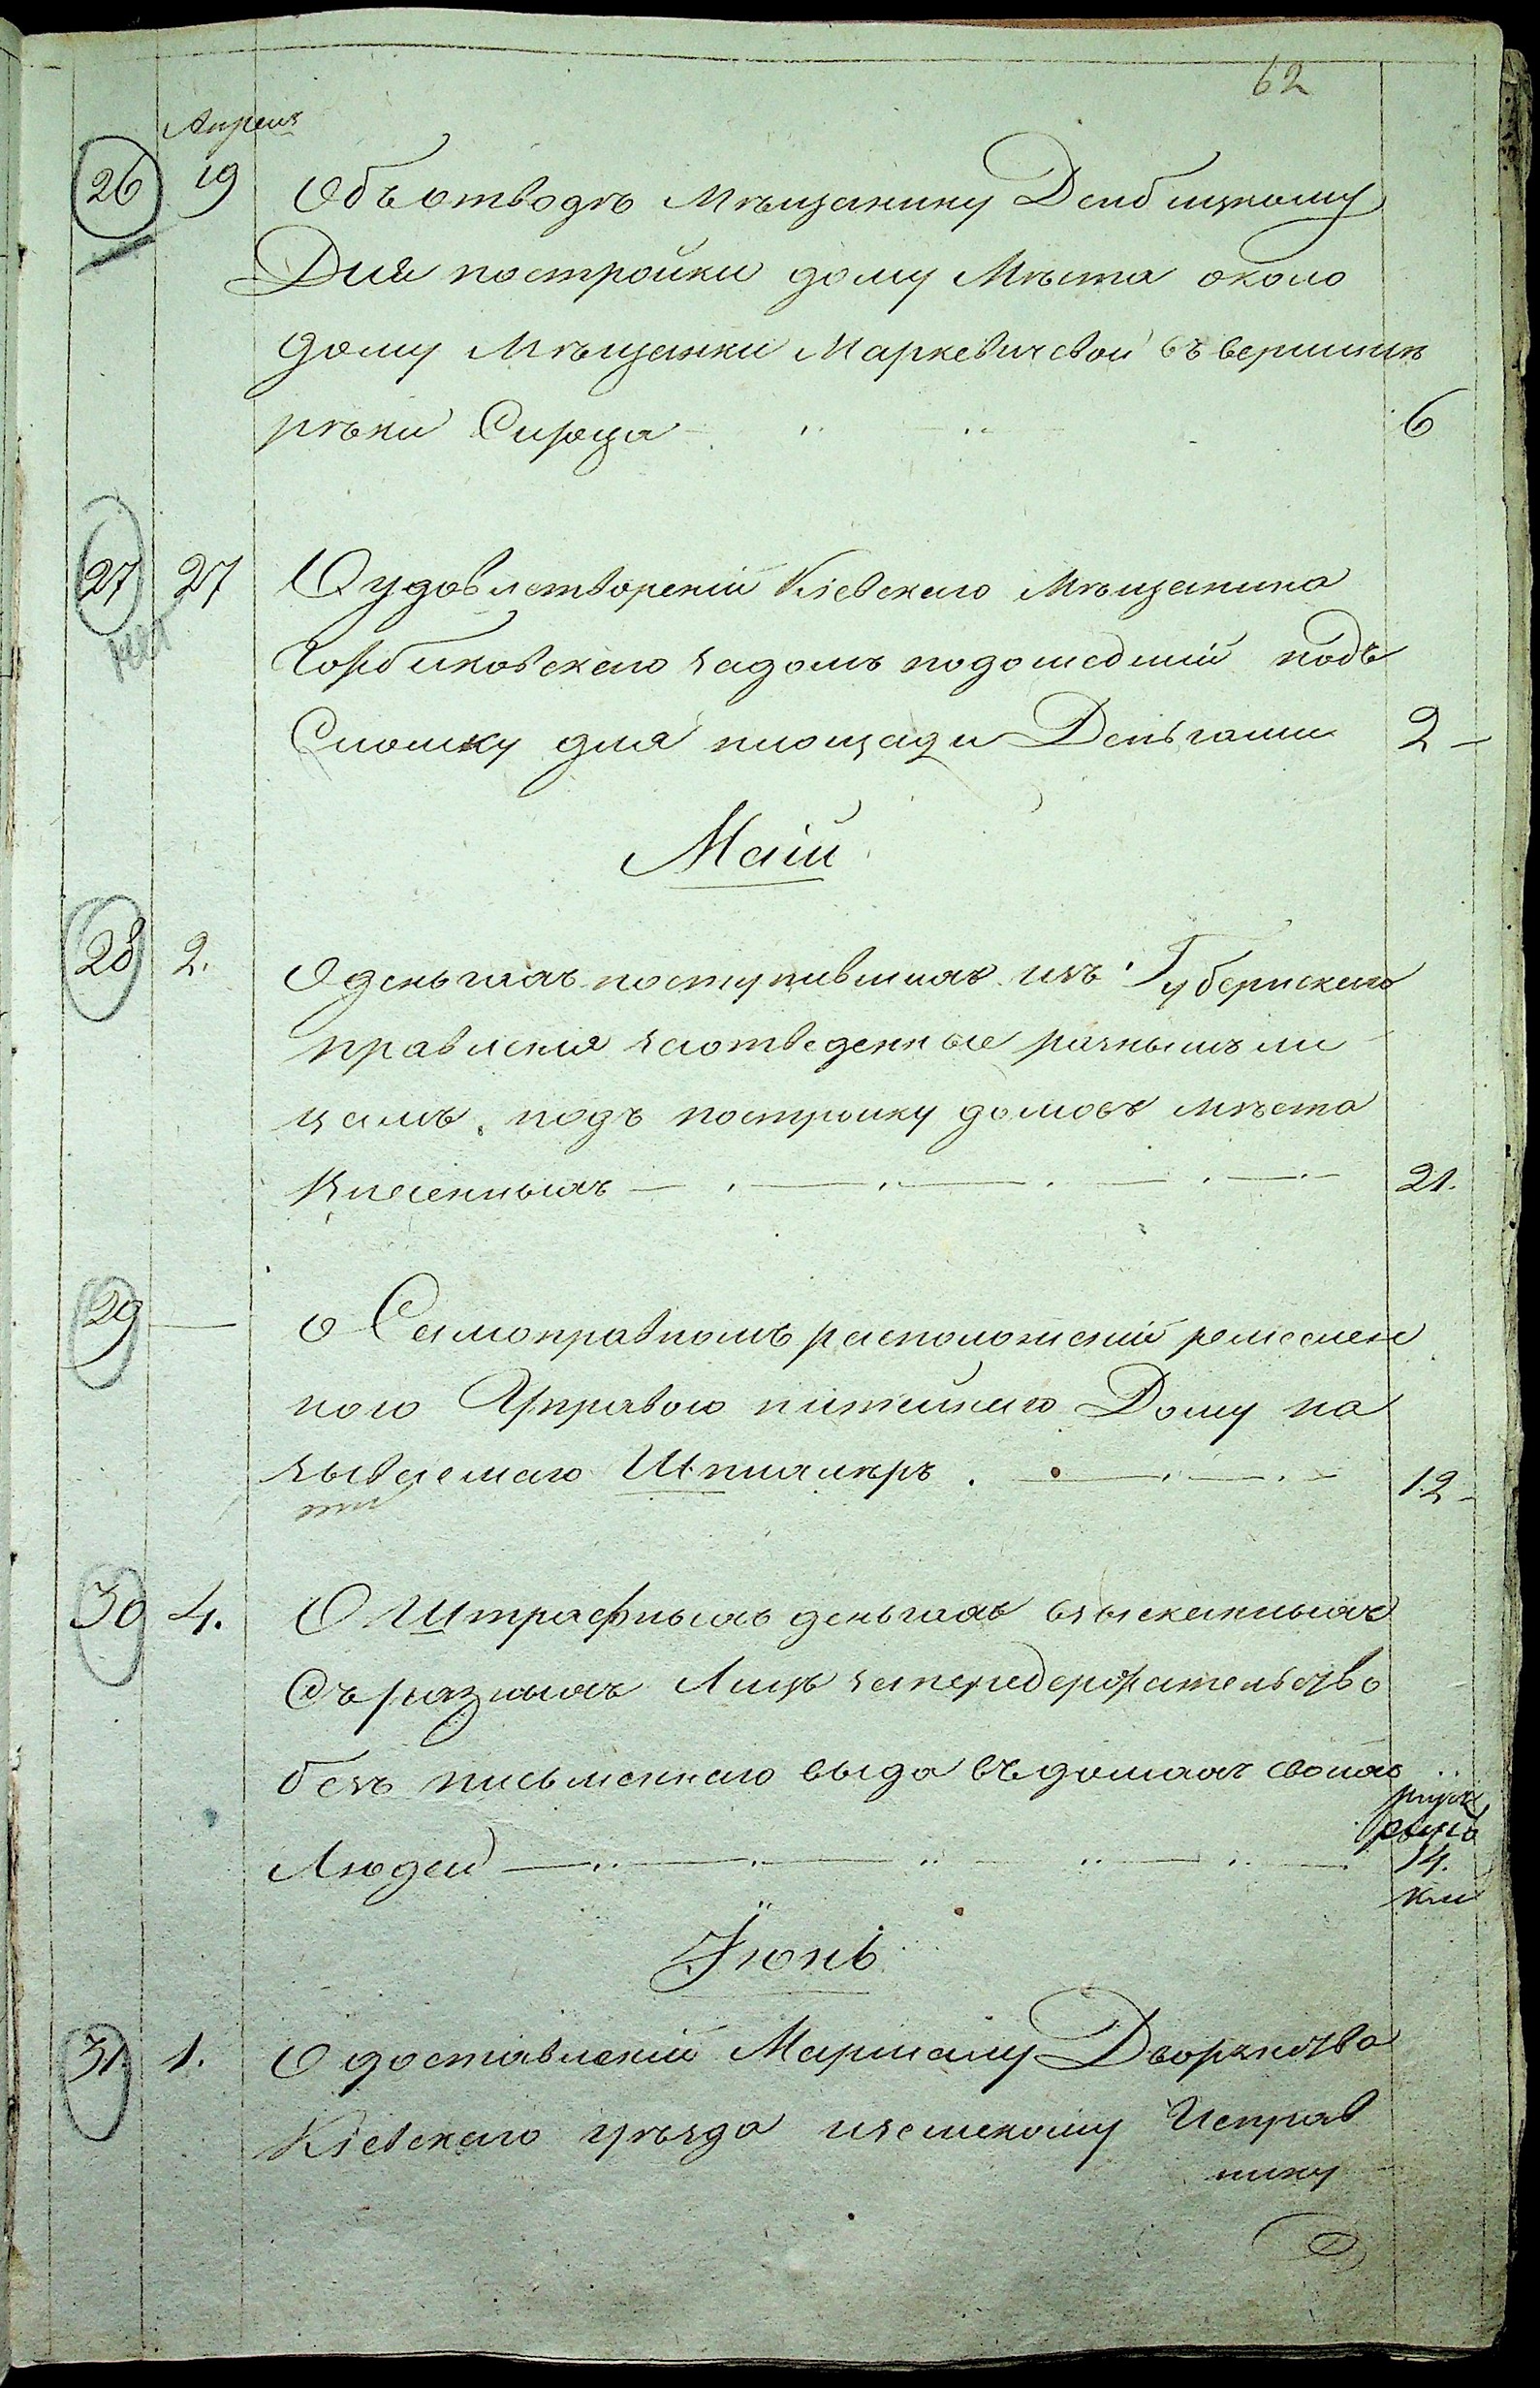 62
Апреля
26 19 Объ отводѣ Мѣщанину Дембицкому
Для постройки дому Мѣста около
дому Мѣщанки Маркевичевой въ вершинѣ
рѣки Сирца 6
27 27 О удовлетвореніи Кіевскаго Мѣщанина
нет
Горбиковскаго задомъ подошедшій подъ
Сломку для площади Деньгами 2
Маій
28 2. О деньгахъ поступившихъ изъ Губернскаго
правленія заотведенные разнымъ ли
цамъ подъ постройку домовъ мѣста
Казенныхъ 21.
29 — О Самоправномъ расположеніи ремеслен
ного Управою питейнаго Дому на
зываемаго Шпиалеръ 12
30 4. О Штрафныхъ деньгахъ взысканныхъ
Съ разныхъ Лицъ запередержательство
безъ письменнаго вида въ домахъ своихъ
Людей 14.
Іюнь
31. 1. О доставленіи Маршалу Дворянства
Кіевскаго уѣзда иземскому Исправ
нику